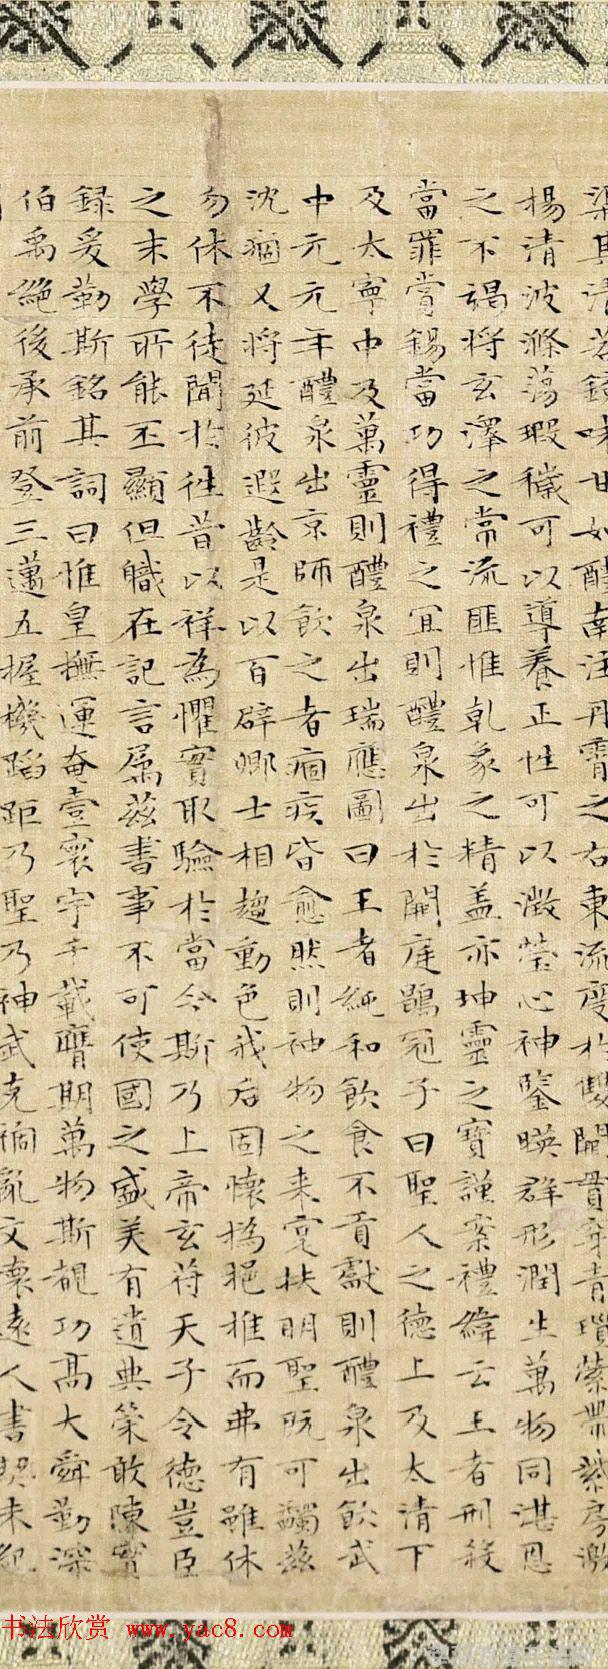 渠其清若鏡味甘如醴南注丹霄之右東流度於雙闕貫穿青瑣縈帶紫房激
楊清波滌蕩瑕穢可以導養正性可以澂瑩心神鑒暎群形潤生萬物同湛恩
之不竭將玄澤之常流匪惟乾象之精蓋亦坤靈之寶謹案禮緯云王者刑殺
當罪賞錫當功得禮之宜則醴泉出於闕庭鶡冠子曰聖人之德上及太清下
及太寧中及萬靈則醴泉出瑞應圖曰王者純和飲食不貢獻則醴泉出飲武
中元元年醴泉出京師飲之者痼疾皆愈然則神物之来寔扶明聖既可蠲茲
沈痼又將延彼遐齡是以百辟卿士相趨動色我后固懷撝挹推而弗有雖休
勿休不徒聞於往昔以祥為懼實取驗於當今斯乃上帝玄符天子令德豈臣
之末學所能丕顯但職在記言属茲書事不可使國之盛美有遺典策敢陳實
録爰勒斯銘其詞曰惟皇撫運奄壹寰宇千載膺期萬物斯覩功高大舜勤深
伯禹絕後承前登三邁五握機蹈矩乃聖乃神武克禍亂文懷遠人書契未紀
书法欣赏 www.yac8.com